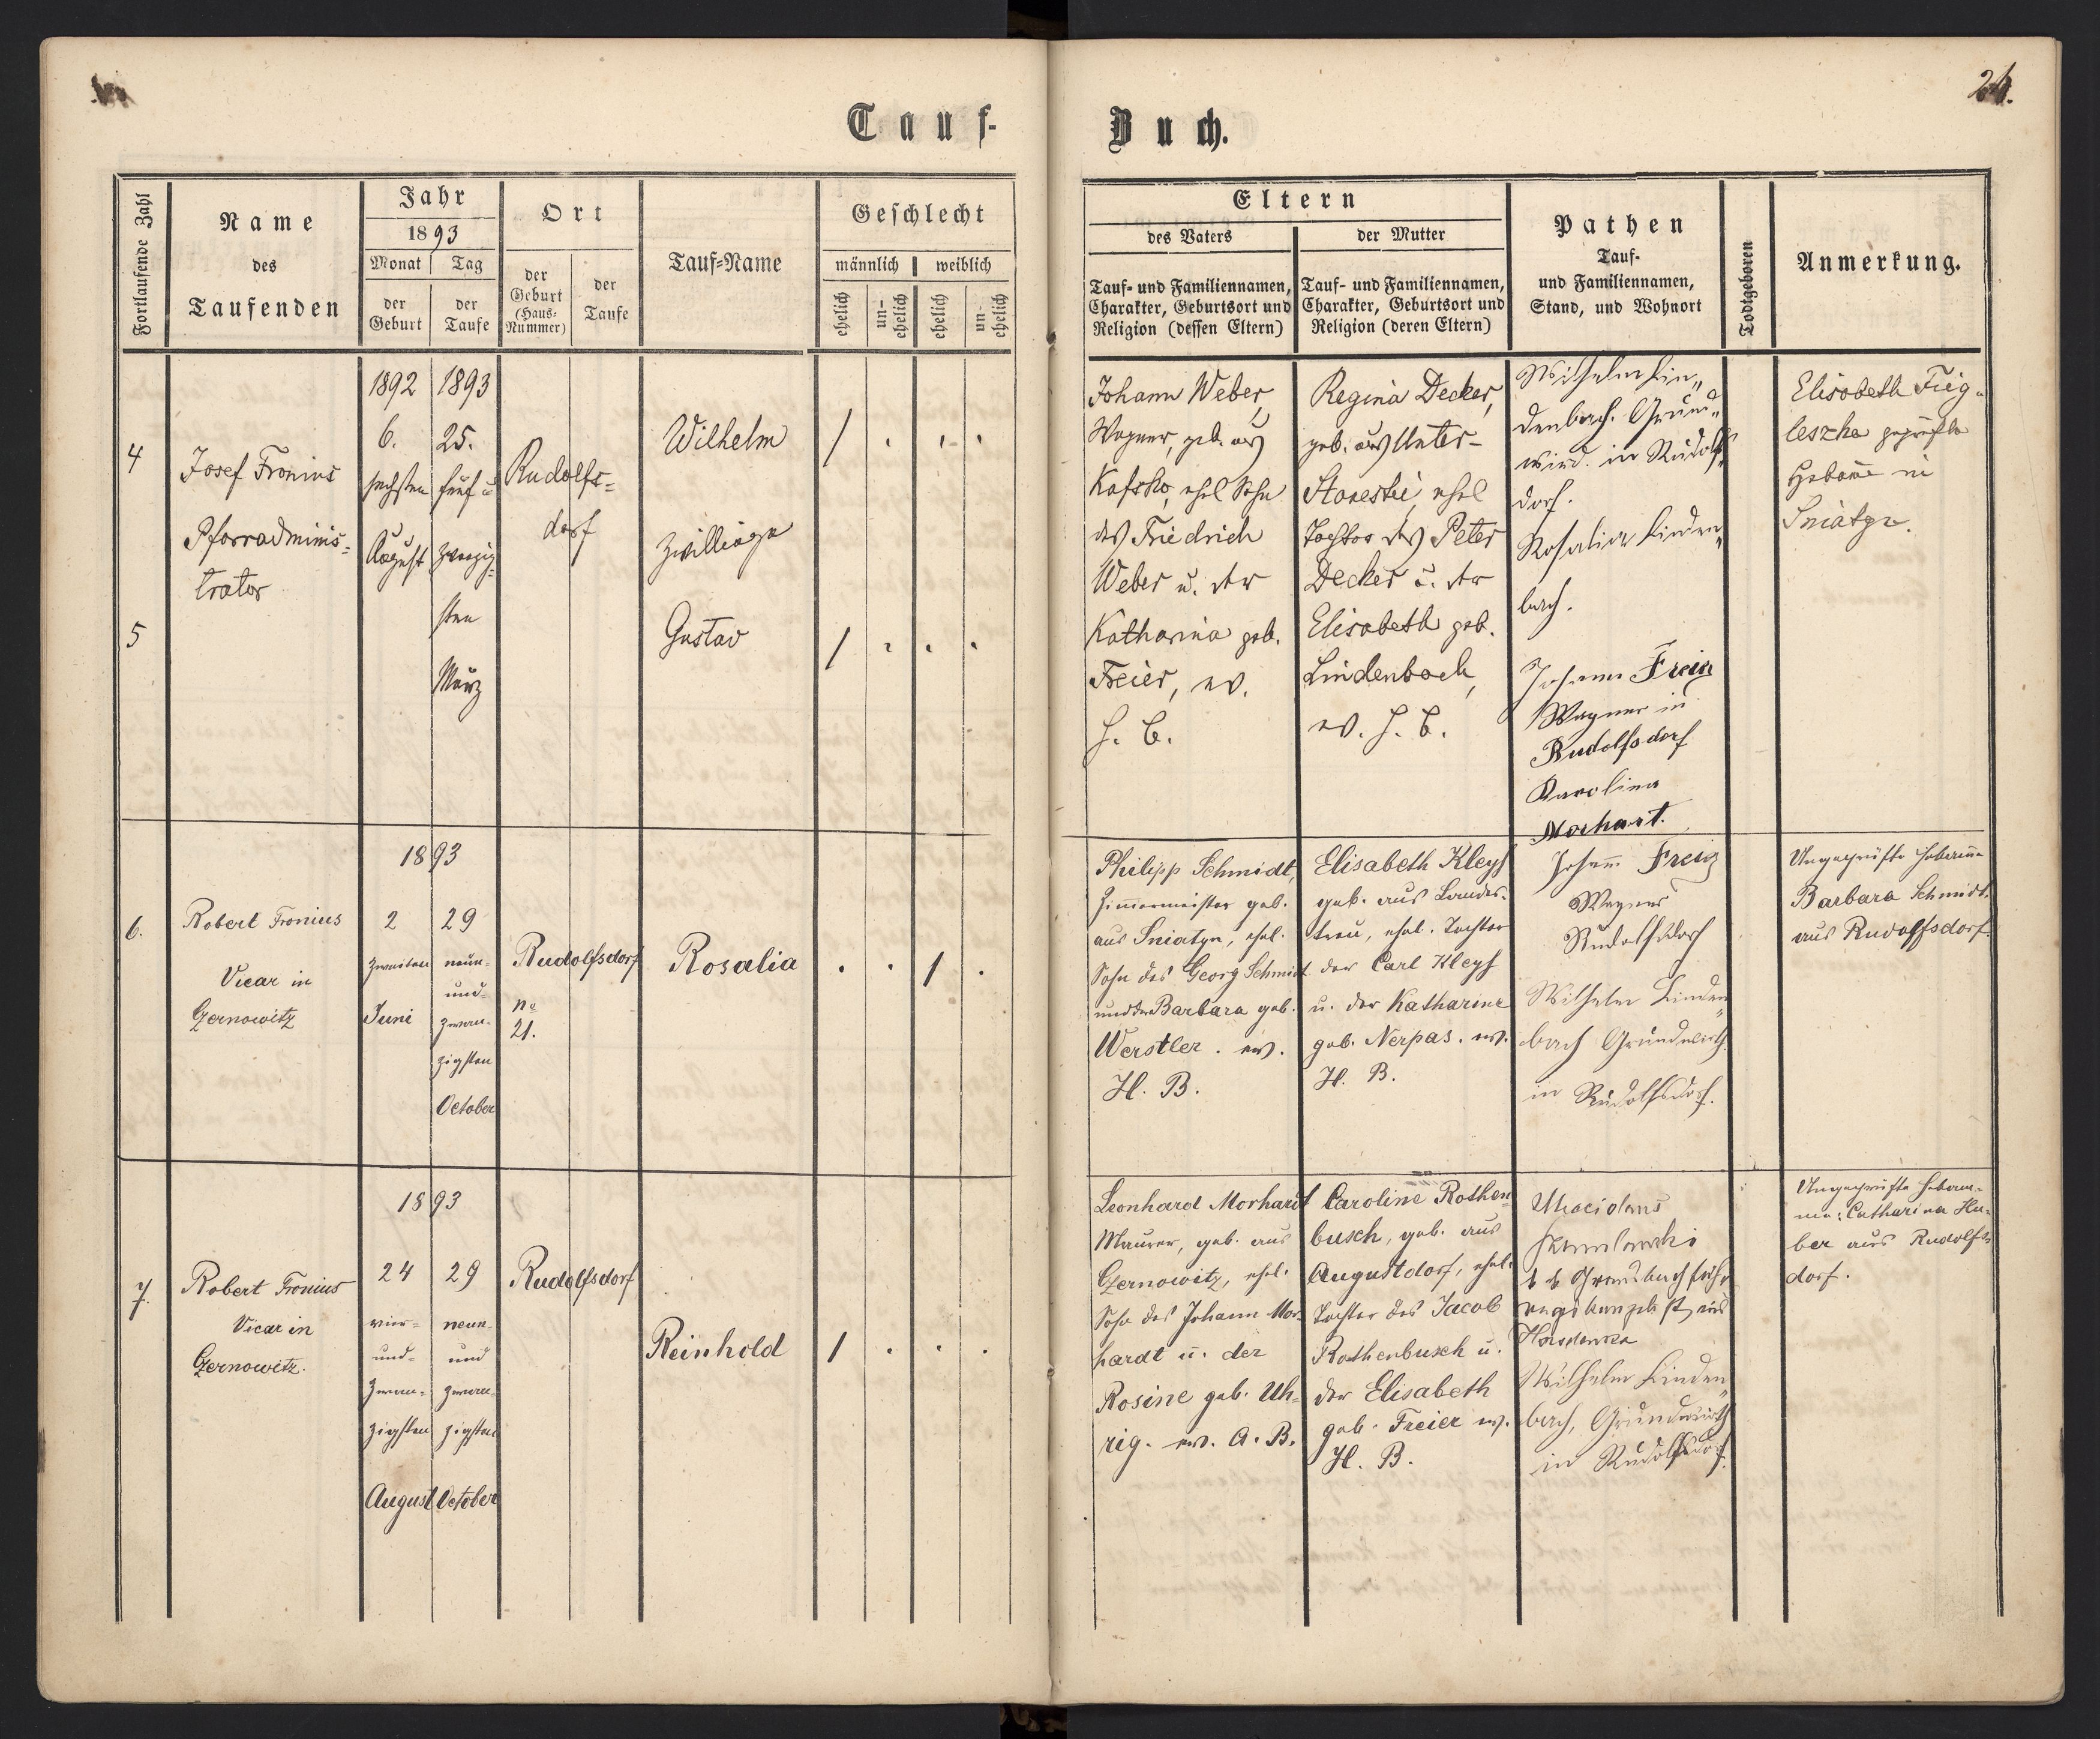 24.
Tauf-
Buch.
Fortlaufende Zahl
Name
des
Taufenden
Jahr
1893
Monat
Tag
der
Geburt
der
Taufe
Ort
der
Geburt
(Haus-
Nummer)
der
Taufe
Tauf=Name
Geschlecht
männlich
weiblich
ehelich
un-
ehelich
ehelich
un-
ehelich
Eltern
des Vaters
der Mutter
Tauf- und Familiennamen,
Charakter, Geburtsort und
Religion (dessen Eltern)
Tauf- und Familiennamen,
Charakter, Geburtsort und
Religion (deren Eltern)
Pathen
Tauf-
und Familiennamen,
Stand, und Wohnort
Todtgeboren
Anmerkung.
4
5
Josef Fronius
Pfarradminis=
trator
1892
6.
sechsten
August
1893
25.
fünf u
zwanzig=
sten
März
Rudolfs=
dorf
Wilhelm
Zwillinge
Gustav
/
/
Johann Weber,
Wagner, geb. aus
Kafsko, ehel Sohn
des Friedrich
Weber u. der
Katharina geb.
Freier, ev.
H. B.
Regina Decker,
geb. aus Unter-
Stanestie, ehel
Tochter des Peter
Decker u. der
Elisabeth geb.
Lindenbach,
ev. H. B.
Wilhelm Lin„
denbach. Grund„
wird. in Rudolfs„
dorf.
Rosalia Linden„
bach.
Johann Freier
Wagner in
Rudolfsdorf
Karolina
Morhart.
Elisabeth Fieg-
leszka geprüfte
Hebame in
Sniatyn.
6.
Robert Fronius
Vicar in
Czernowitz
1893
2
zweiten
Juni
29
neun-
und-
zwan-
zigsten
October
Rudolfsdorf
No
21.
Rosalia
1
Philipp Schmidt,
Zimmermeister geb.
aus Sniatyn, ehel.
Sohn des Georg Schmidt
und der Barbara geb.
Werstler. ev.
H. B.
Elisabeth Kleys
geb. aus Landes-
treu, ehel. Tochter
der Carl Kleys
u. der Katharine
geb. Nerpas. ev.
H. B.
Johann Freier
Wagner
Rudolfsdorf
Wilhelm Linden„
bach Grundwirth
in Rudolfsdorf.
Ungeprüfte Hebamme
Barbara Schmidt.
aus Rudolfsdorf.
7.
Robert Fronius
Vicar in
Czernowitz.
1893
24
vier=
und-
zwan-
zigsten
August
29
neun-
und
zwan-
zigsten
October
Rudolfsdorf
Reinhold
1
Leonhard Morhardt
Maurer, geb. aus
Czernowitz, ehel.
Sohn des Johann Mor-
hardt u. der
Rosine geb. Uh-
rig. ev. A. B.
Caroline Rothen=
busch, geb. aus
Augustdorf, ehel.
Tochter des Jacob
Rothenbusch u.
der Elisabeth
geb. Freier ev.
H. B.
Wilhelm Linden„
bach, Grundwirth
in Rudolfsdorf.
Ungeprüfte Hebam-
me: Catharina Hu-
ber aus Rudolfs
dorf.